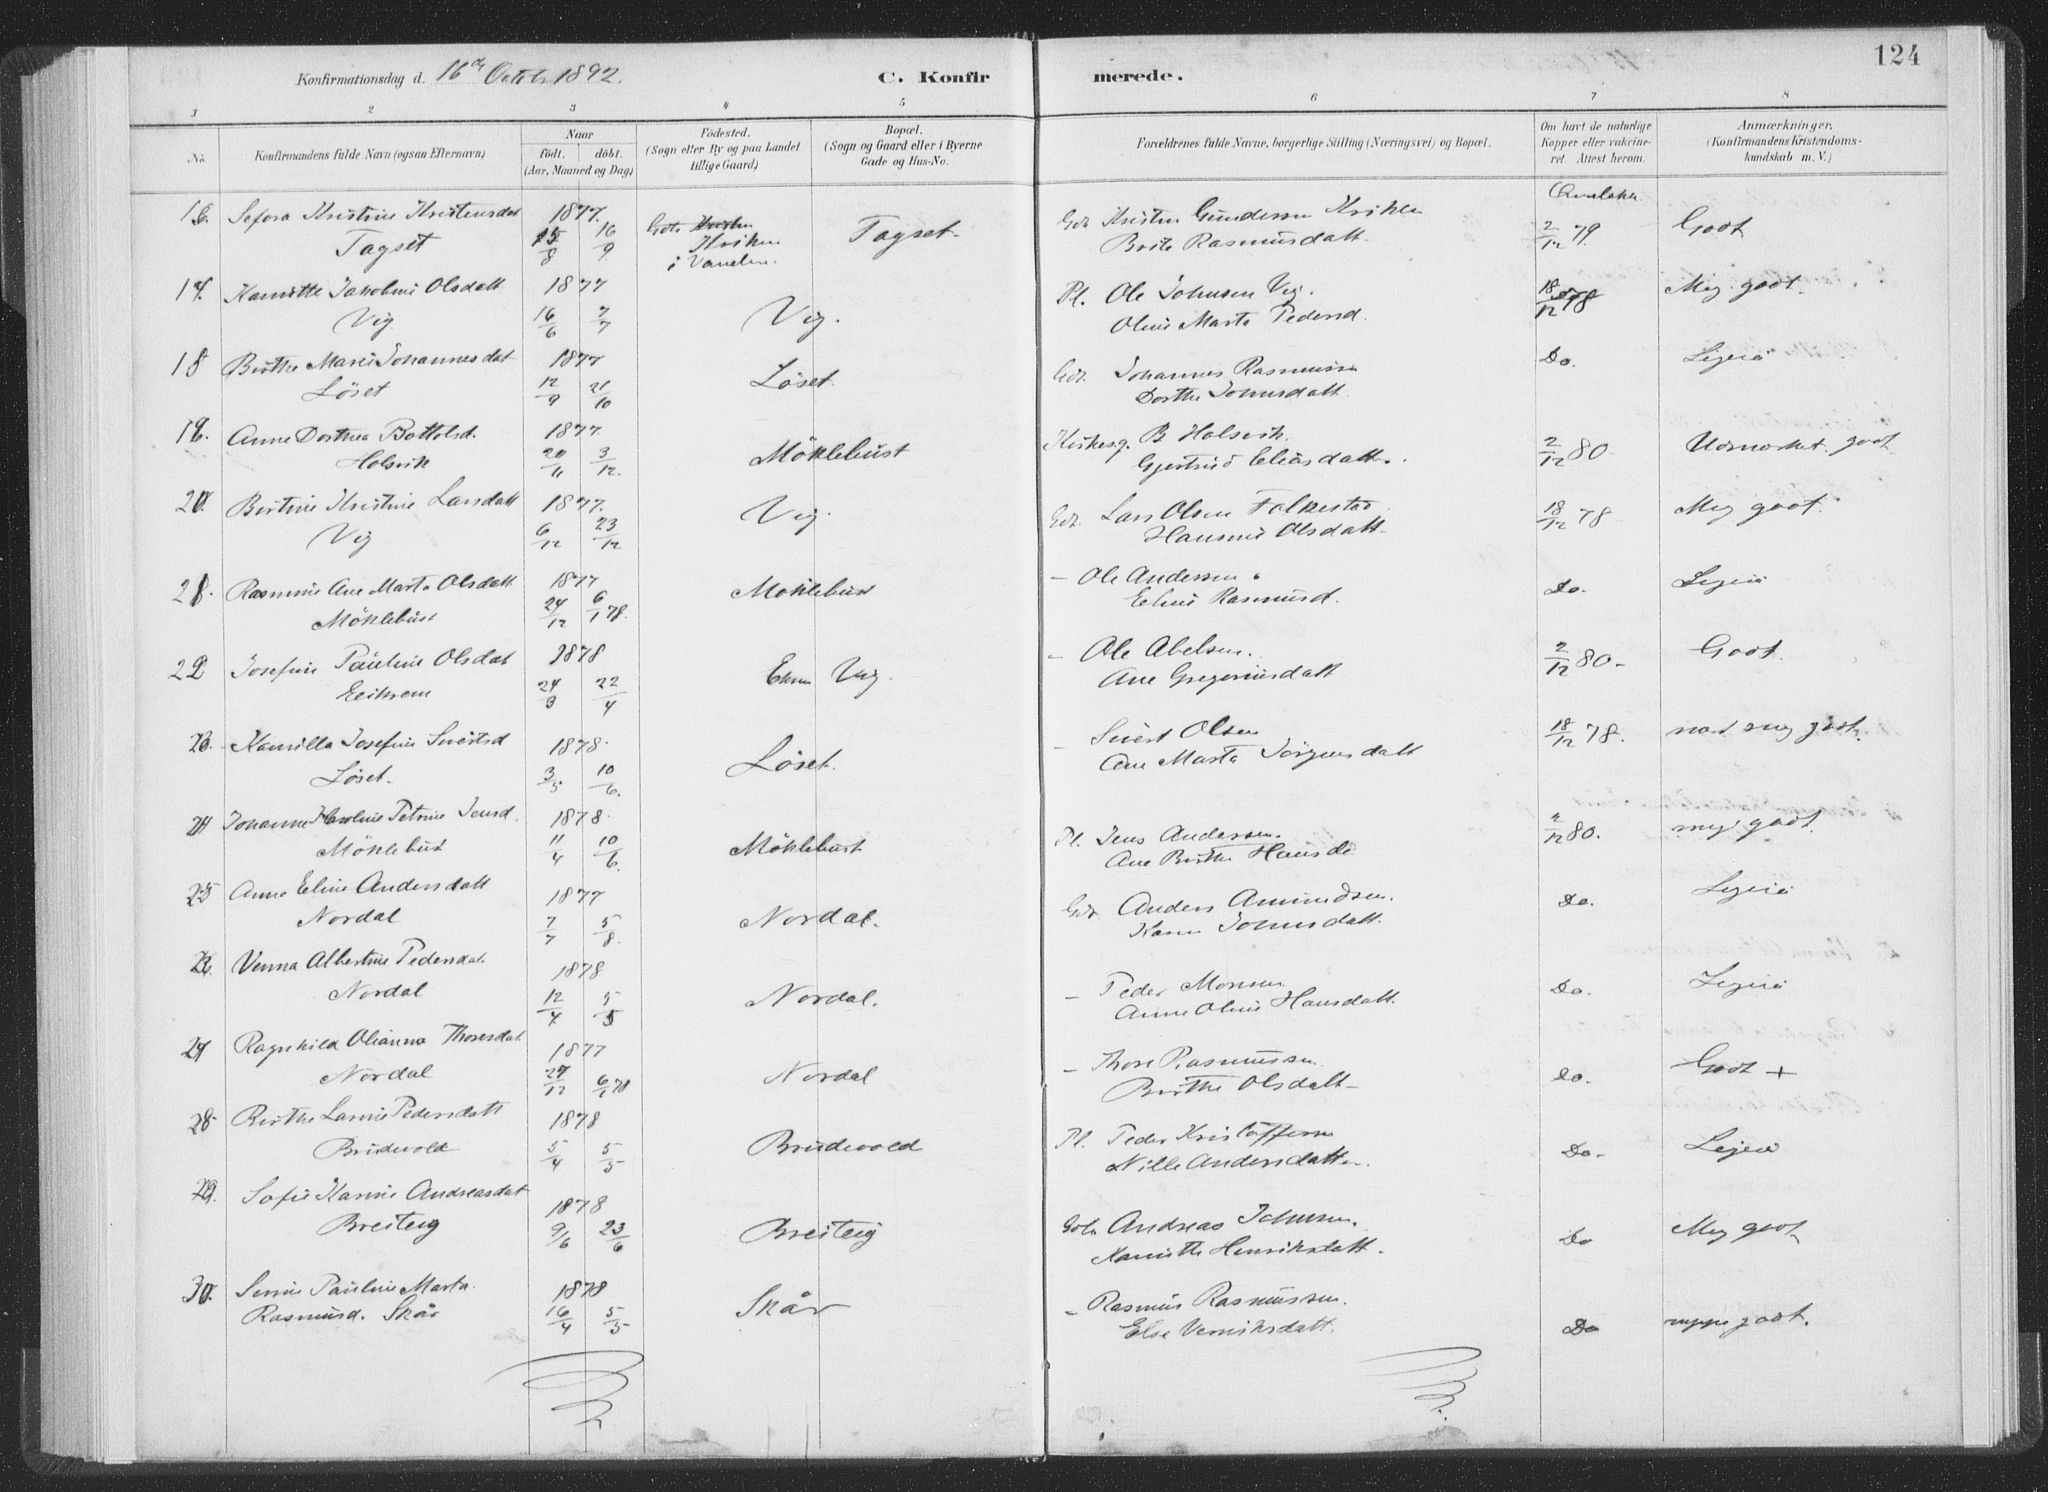 124
Konfirmationsdag d. 16de Octob. 1892.
C. Konfirmerede.
1 2 3 4 5 6 7 8
No.
Konfirmandens fulde Navn (ogsaa Efternavn)
Naar
födt. döbt.
(Aar, Maaned og Dag)
Födested.
(Sogn eller By og paa Landet
tillige Gaard)
Bopæl.
(Sogn og Gaard eller i Byerne
Gade og Hus-No.
Forældrenes fulde Navne, borgerlige Stilling (Næringsvei) og Bopæl.
Om havt de naturlige
Kopper eller vakcine-
ret. Attest herom.
Anmærkninger.
(Konfirmandens Kristendoms-
kundskab m. V.)
16. Sefora Kristine Kristensdat 1877. Tagset. Gdr Kristen Gunderssn 2/12 79. Godt
Tagset 15/8 16/9 Brite Rasmusdatt.
17. Jakobine Olsdatt 1877 Vig. Pl. Ole Johnsen Vig. 18/12 78 Meg. godt.
Vig 16/6 7/7 Oline Marta Pedersd.
18 Birthe Marie Johannesdat 1877 Löset Gdr. Johannes Rasmussn Do. Ligesaa
Löset 12/9 21/10 Dorthe Johnsdatt.
19. Anne Dorthea Bottolsd. 1877. Möklebust Kirkesg. B Holsvik. 2/12 80 Udmærket godt
Holsvik 20/11 3/12. Gjertrud Eliasdatt.
20. Bertine Kristine Larsdatt 1877. Vig. Gdr. Lars Olsen Folkestad 18/12 78 Meg godt.
Vig 6/12 23/12 Hansine Olsdatt.
21. Rasmine Ane Marta Olsdatt 1877 Möklebust – Ole Andersen. Do. Ligesaa
Möklebust 24/12 6/1 78. Eline Rasmusd.
22 Josefine Pauline Olsdat 1878 Vig. – Ole Abelsen. 2/12 80 Godt.
24/3 22/4 Ane Gregoriusdatt
23. Kamilla Josefine Sivertsd 1878. Löset. – Sivert Olsen 18/12 78. meg godt.
Löset. 3/5 10/6. Ane Marta Jörgensdatt
24 Johanne Karoline Petrine Jensd. 1878. Möklebust Pl. Jens Andersen. 2/12 80. meg godt.
Möklebust 11/4 10/6. Ane Birthe Hansd.
25 Anne Eline Andersdatt 1877 Nordal. Gdr Anders Amundsen. Do. Ligesaa
Nordal 7/7 5/8. Karen Johnsdatt.
26. Venna Albertine Pedersdat. 1878 Nordal. – Peder Monsen Do. Ligesaa
Nordal 12/4 5/5 Anne Oline Hansdatt
27 Ragnhild Olianna Thoresdat 1877 Nordal – Thore Rasmussen. Do. Godt +
Nordal 27/12 6/1 78 Birthe Olsdatt –
28 Birthe Larine Pedersdatt 1878 Brudevold Pl. Peder Kristoffersen Do. Ligesaa
Brudevold 5/4 5/5 Nille Andersdatter.
29. Sofie Karine Andreasdat 1878 Breiteig Gdr Andreas Johnsen. Do Meg godt
Breiteig 9/6 23/6 Henriksdatt.
30. Serine Pauline Marta. 1878 Skår – Rasmus Rasmussen. Do neppe godt.
Rasmusd. Skår 16/4 5/5 Else Henriksdatt.